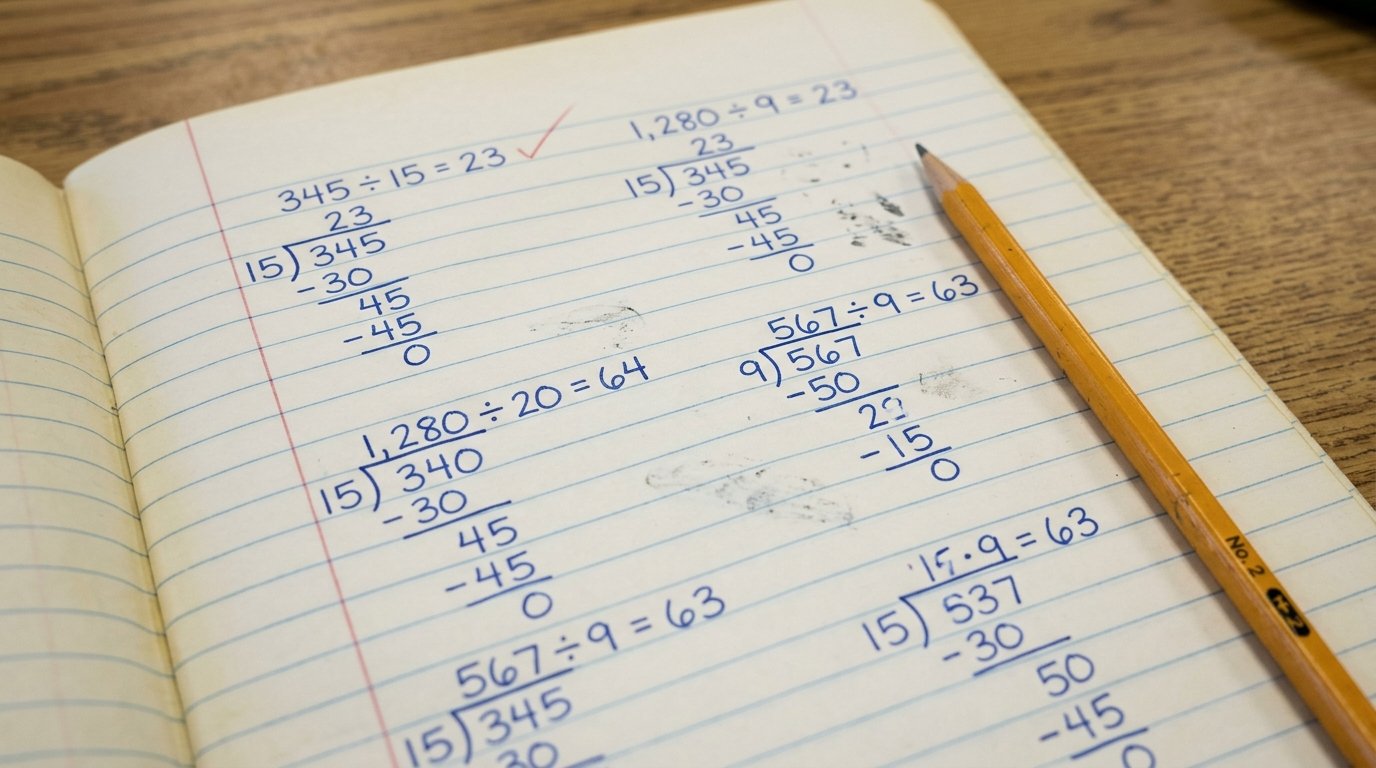 345 ÷ 15 = 23
23
15)345
-30
45
-45
0
1,280 ÷ 20 = 64
15)340
-30
45
-45
0
567 ÷ 9 = 63
15)345
30
1,280 ÷ 9 = 23
23
15)345
-30
45
-45
0
567 ÷ 9 = 63
9)567
-50
2
-15
0
9 = 63
15)537
-30
50
-45
0
No. 2